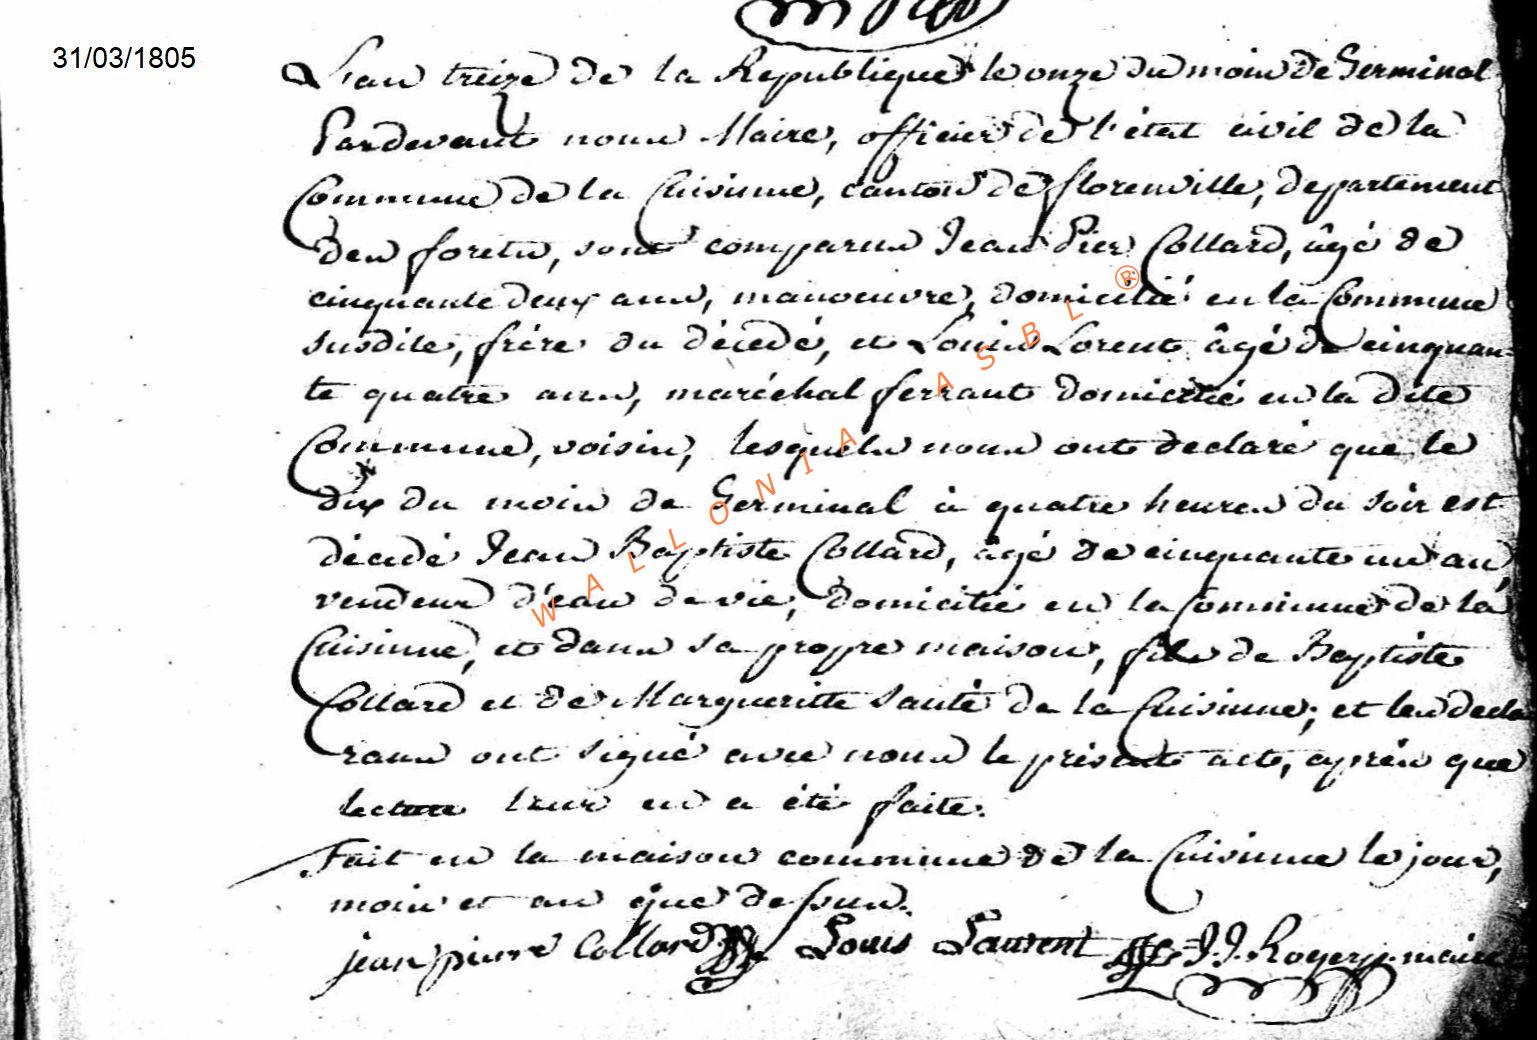 31/03/1805
L'an treize de la Republique le onze du mois de Germinal
Pardevant nous Maire, officier de l'état civil de la
Commune de la Cuisinne, canton de florenville, departement
des forets, sont comparus Jean Pier Collard, âgé de
cinquante deux ans, manoeuvre, domicilié en la Commune
susdite, frère du décédé, et Louis Lorent âgé de cinquan=
te quatre ans, maréchal ferrant domicilié en la dite
Commune, voisin, lesquels nous ont declaré que le
dix du mois de Germinal à quatre heures du soir est
décédé Jean Baptiste Collard, âgé de cinquante un an,
vendeur d'eau de vie, domicilié en la Commune de la
Cuisinne, et dans sa propre maison, fils de Baptiste
Collard et de Margueritte Santé de la Cuisinne; et les decla
rans ont signé avec nous le présent acte, après que
lecture leur en a été faite.
Fait en la maison commune de la Cuisinne le jour,
mois et an que dessus.
jean pierre Collard Louis Laurent J.J. Roger maire
WALLONIA ASBL ®